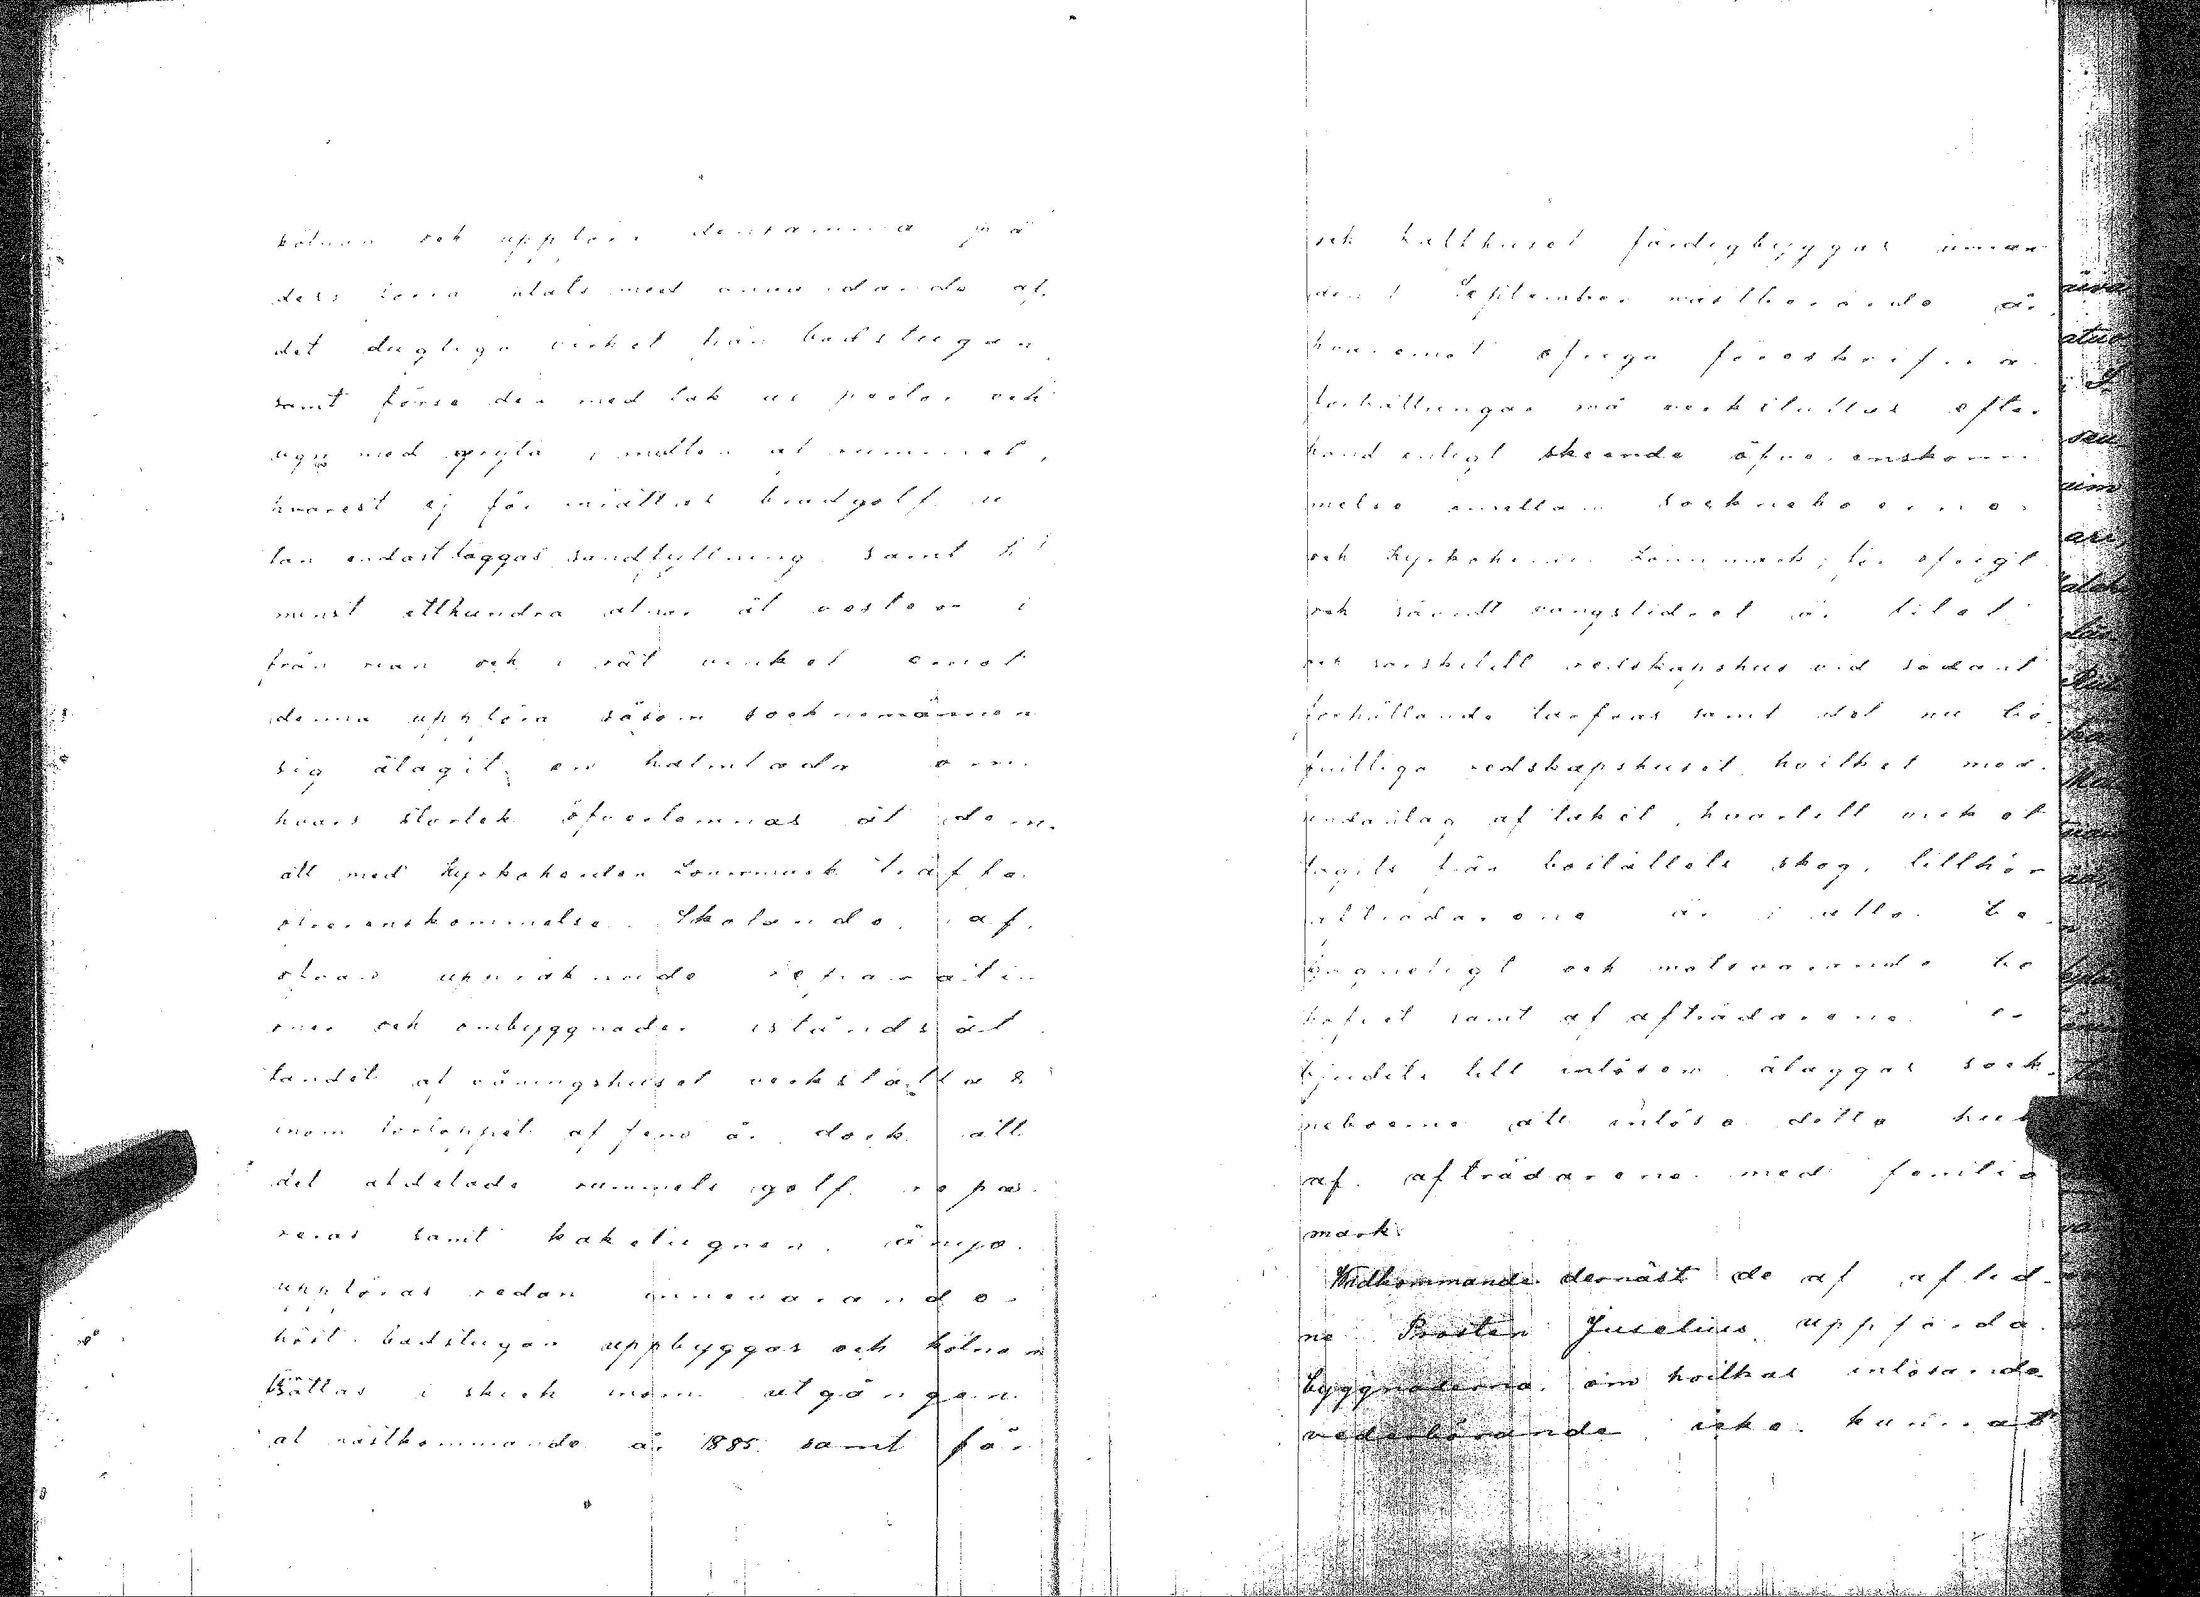 kölnan och uppföra densamma på
dess förra plats med användande af
det dugliga virket från badstugan
samt förse den med tak av pärtor och
ugn med gryta i midten af rummet,
hvarest ej får insättas brädgolf u
tan endast läggas sandfyllning samt till
minst etthundra alnar åt vester i
från rian och i rät vinkel emot
denna uppföra såsom socknemännen
sig ålagit, en halmlada om
hvars storlek öfverlemnas åt dem
att med Kyrkoherden Lönnmark träffa
öfverenskommelse. Skolande af
ofvan uppräknade reparatio
ner och ombyggnader iståndsät
tandet af våningshuset verkställas
inom förloppet af fem år, dock att
det afdelade rummets golf repa
reras samt kakelugnen ånyo
uppföras redan innevarande
höst, badstugan uppbyggas och kölnan
sättas i skick inom utgången
af nästkommande år 1885 samt får
och kallhuset färdigbyggas innan
den 1 September nästberörde år
hvaremot öfriga föreskrifna
förbättringar må verkställas efter
hand enligt skeende öfverenskom
melse emellan sockneboerne
och Kyrkoherde Lönnmark; för öfrigt
och särskildt redskapshus vid sådant
förhållande tarfvas samt det nu be
fintliga redskapshuset, hvilket med
undantag af taket, hvartill virket
tagits från boställets skog, tillhör
aftradarene är i allo be
hagneligt och motsvarande be
hofvet samt af afträdarene er
bjudits till inlösen, ålägges sock
neboerne att inlösa detta hus
af afträdarene med femtio
mark.
Vidkommande dernäst de af aflid
ne Prosten Juselius uppförda
byggnaderna, om hvilkas inlösande
vederbörande icke kunnat